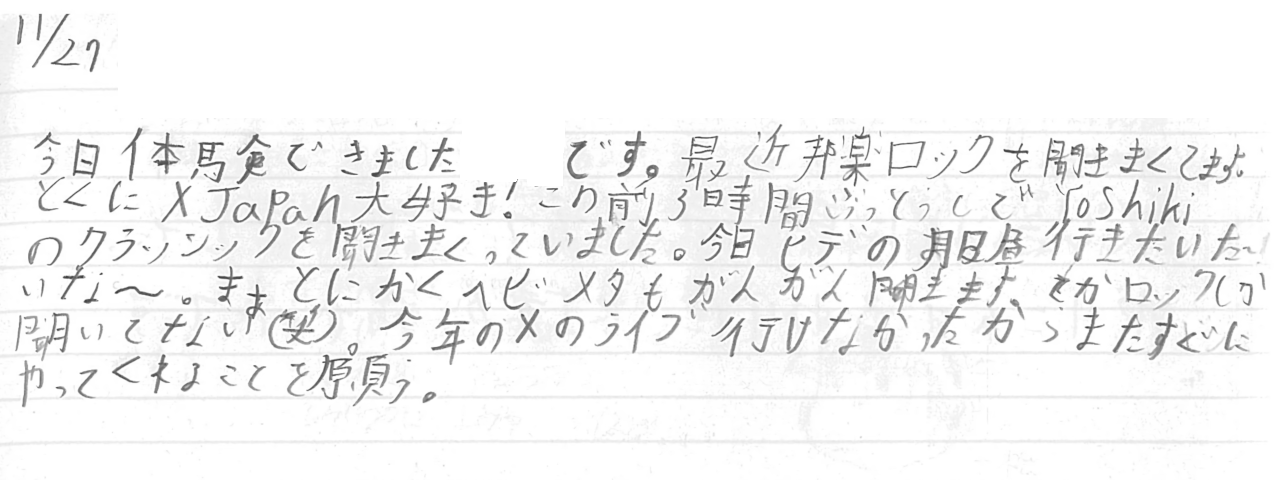 11/27
今日体験できました です。最近邦楽ロックを聞きまくてます。
とくにX Japan大好き!この前3時間ぶっとうしでYoshiki
のクラッシックを聞きまくっていました。今日ヒデの 行きたいた〜
いな〜。まあとにかくヘビメタもがんがん聞きます。てかロックしか
聞いてない(笑)。今年のXのライブ行けなかったからまたすぐに
やってくれることを願う。